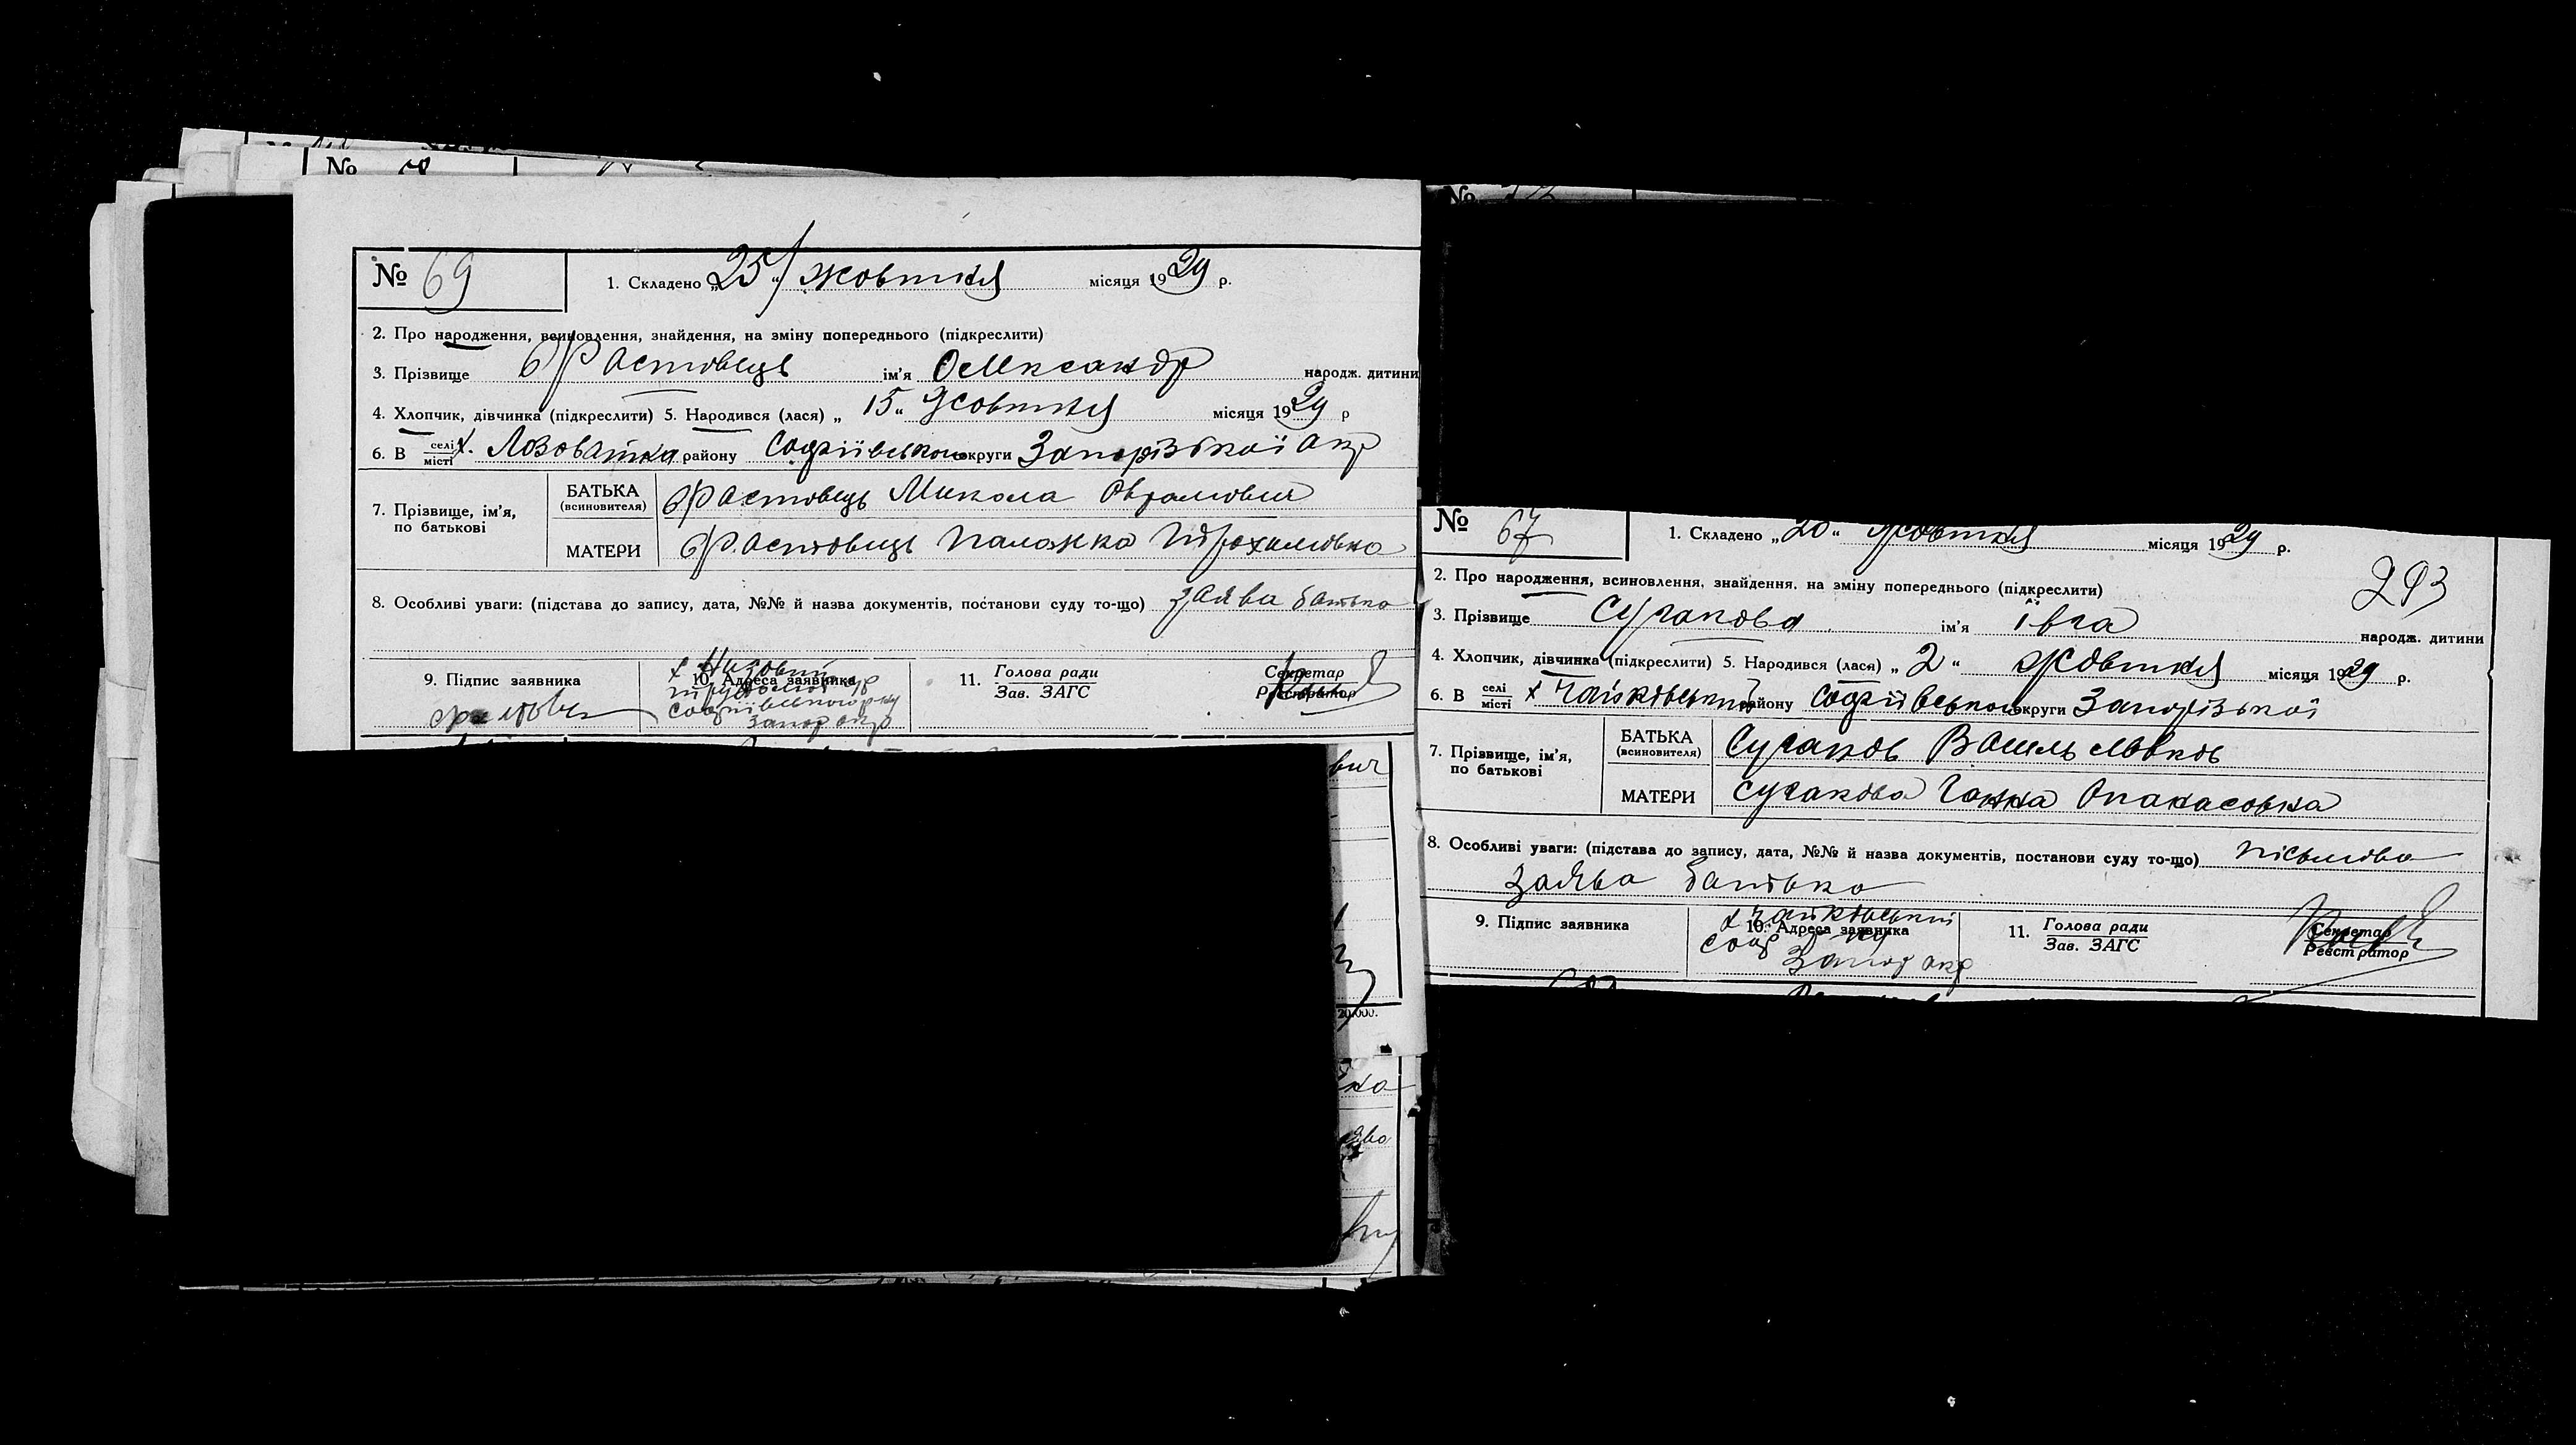 № 69
1. Складено „25“ жовтня місяця 1929 р.
2. Про народження, всиновлення, знайдення, на зміну попереднього (підкреслити)
3. Прізвище Фастовець ім'я Олександр народж. дитини
4. Хлопчик, дівчинка (підкреслити) 5. Народився (лася) „15“ Жовтня місяця 1929 р
6. В селі місті х. Лозоватка району Софіївського округи Запорізької окр
7. Прізвище, ім'я, по батькові
БАТЬКА (всиновителя) Фастовець Микола
МАТЕРИ Фастовець Палажка
8. Особливі уваги: (підстава до запису, дата, №№ й назва документів, постанови суду то-що) заява батька
9. Підпис заявника
10. Адреса заявника х Низовий Софіївського р-ну Запор окр
11. Голова ради Зав. ЗАГС
Секретар Реєстратор
№ 67
1. Складено „20“ жовтня місяця 1929 р.
293
2. Про народження, всиновлення, знайдення, на зміну попереднього (підкреслити)
3. Прізвище Сугакова ім'я Івга народж. дитини
4. Хлопчик, дівчинка (підкреслити) 5. Народився (лася) „2“ Жовтня місяця 1929 р.
6. В селі місті х Чайковський району Софіївського округи Запорізької
7. Прізвище, ім'я, по батькові
БАТЬКА (всиновителя) Сугаков Василь
МАТЕРИ Сугакова Ганна Опанасовна
8. Особливі уваги: (підстава до запису, дата, №№ й назва документів, постанови суду то-що) письмова
заява батька
9. Підпис заявника
10. Адреса заявника х Чайковський Соф р-ну Запор окр
11. Голова ради Зав. ЗАГС
Секретар Реєстратор
20.000.